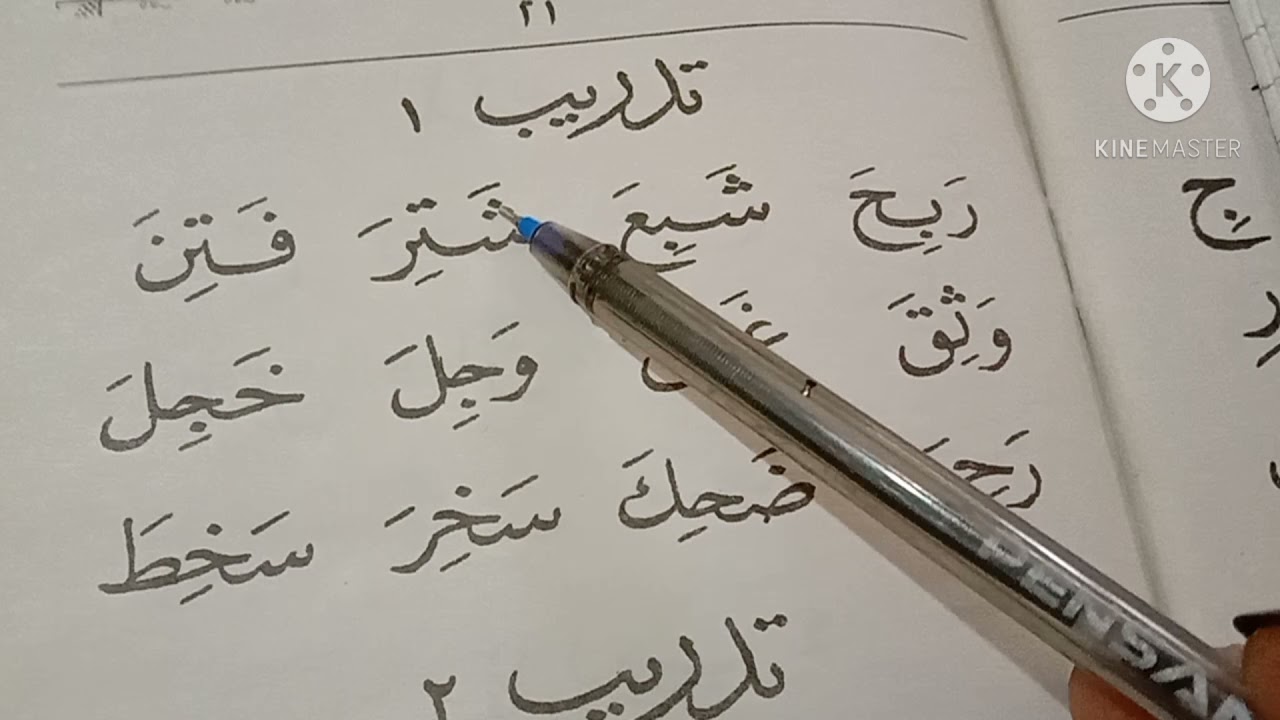 ٢١
تدريب ١
رَبِحَ شَبِعَ شَتِرَ فَتِنَ
وَثِقَ وَجِلَ خَجِلَ
ضَحِكَ سَخِرَ سَخِطَ
تدريب ٢
K
KINEMASTER
PENSAN